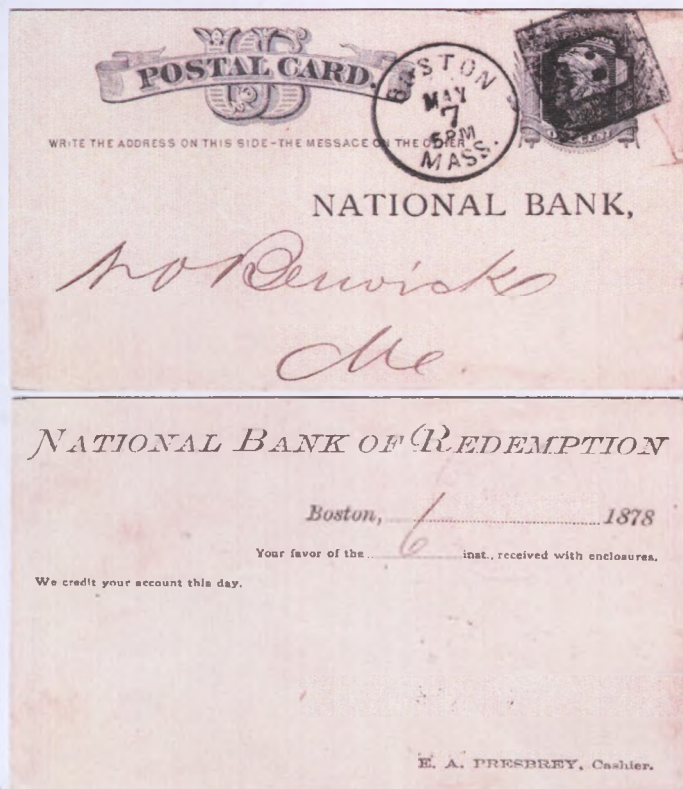 POSTAL CARD.
WRITE THE ADDRESS ON THIS SIDE-THE MESSAGE ON THE OTHER
BOSTON
MAY
7
5PM
MASS.
NATIONAL BANK,
No Berwick
Me
NATIONAL BANK OF REDEMPTION
Boston, 1878
Your favor of the 6 inst., received with enclosures.
We credit your account this day.
E. A. PRESBREY, Cashier.